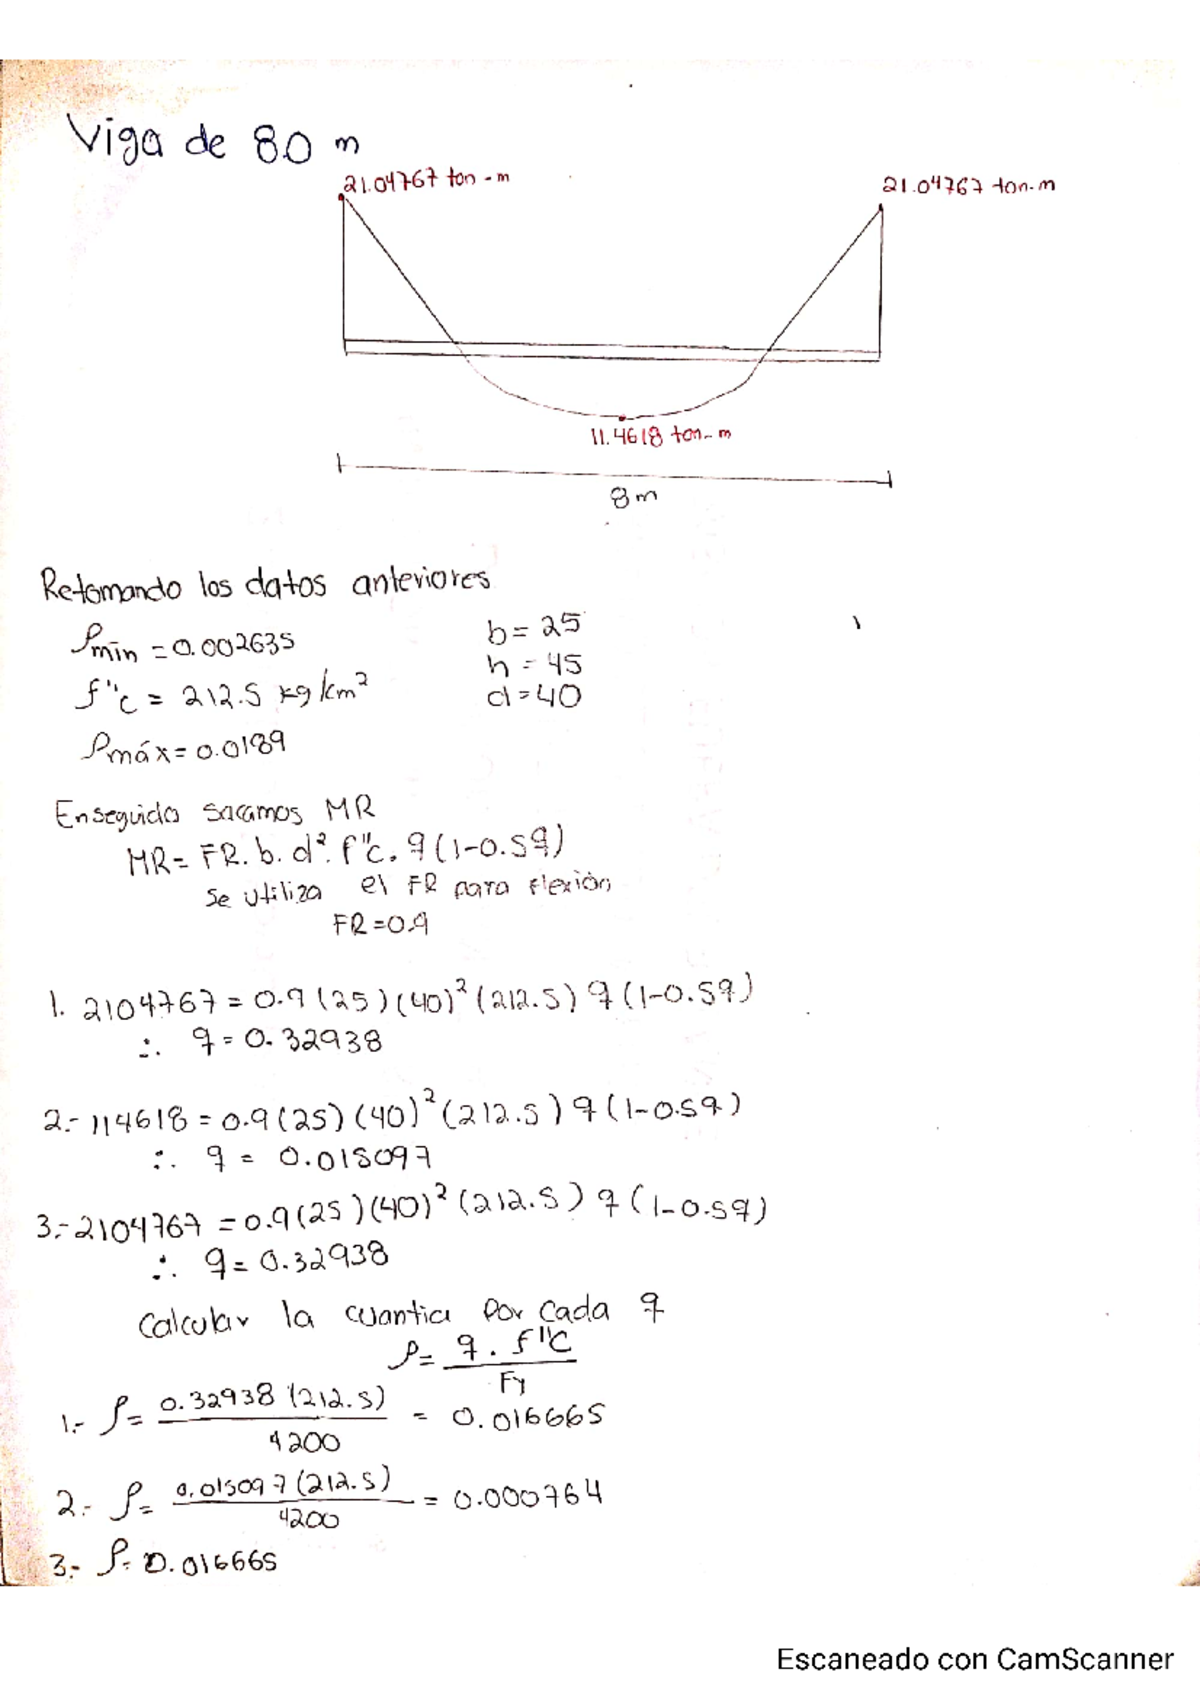 Viga de 8.0 m
21.04767 ton-m
21.04767 ton-m
11.4618 ton-m
8m
Retomando los datos anteriores
ρmín = 0.002635
b = 25
h = 45
f"c = 212.5 kg/cm²
d = 40
ρmáx = 0.0189
Enseguida sacamos MR
MR = FR. b. d². f"c. q (1-0.5q)
Se utiliza el FR para flexión
FR = 0.9
1. 2104767 = 0.9 (25) (40)² (212.5) q (1-0.5q)
∴ q = 0.32938
2.- 114618 = 0.9 (25) (40)² (212.5) q (1-0.5q)
∴ q = 0.015097
3.- 2104767 = 0.9 (25) (40)² (212.5) q (1-0.5q)
∴ q = 0.32938
Calcular la cuantia por cada q
ρ = q . f"c / Fy
1.- ρ = 0.32938 (212.5) / 4200 = 0.016665
2.- ρ = 0.015097 (212.5) / 4200 = 0.000764
3.- ρ = 0.016665
Escaneado con CamScanner